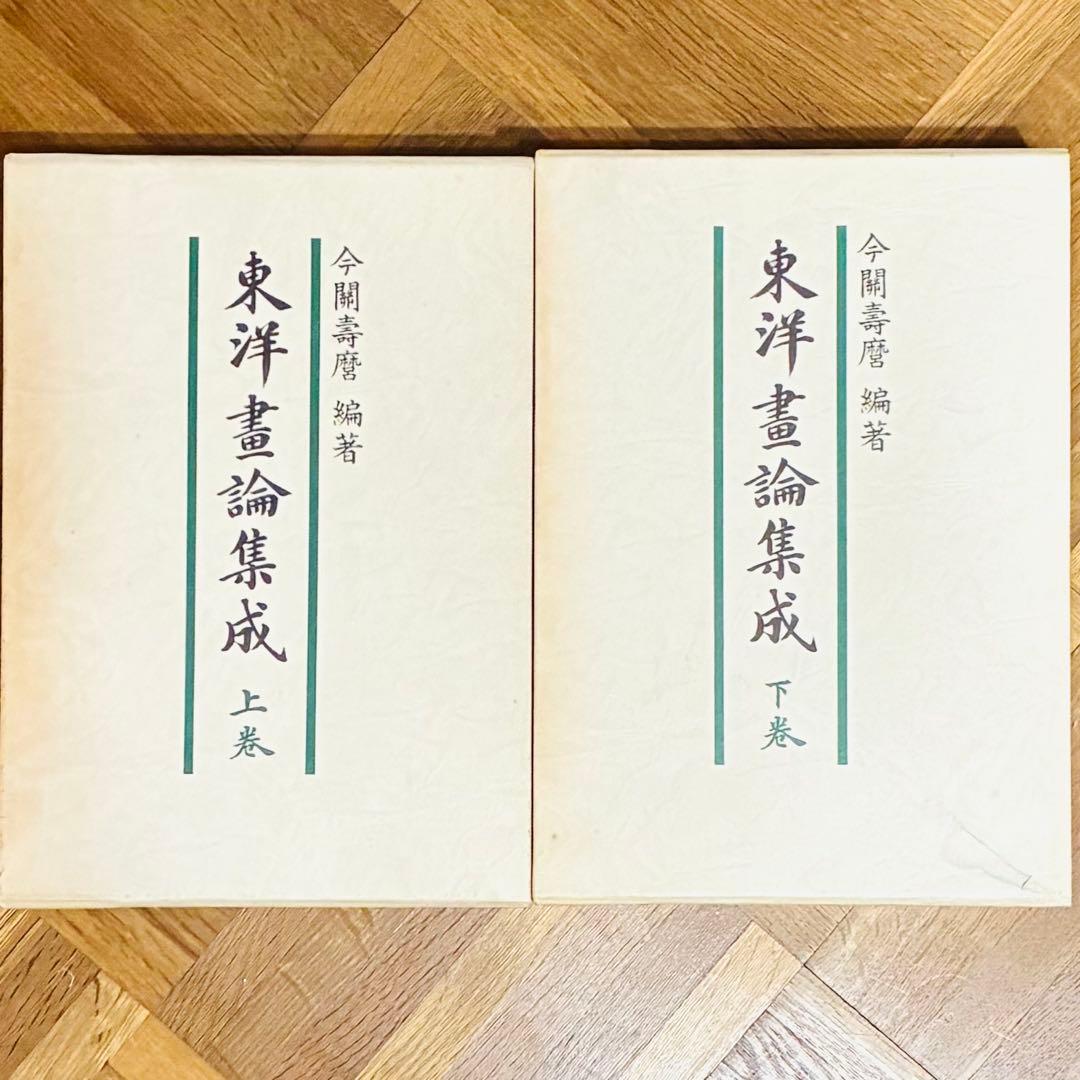 今關壽麿 編著
東洋畫論集成
上卷
今關壽麿 編著
東洋畫論集成
下卷